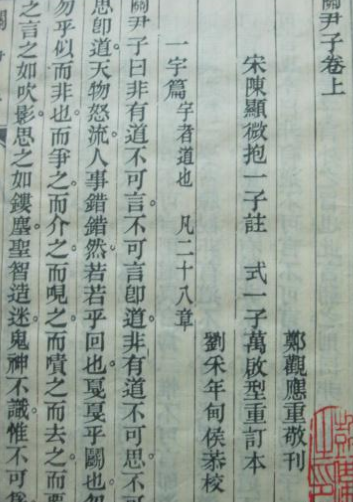 關尹子卷上
宋陳顯微抱一子註 式一子萬啟型重訂本
鄭觀應重敬刊
劉采年甸侯恭校
一字篇 字者道也 凡二十八章
關尹子曰非有道不可言不可言卽道非有道不可思不可
思卽道天物怒流人事錯錯然若若乎回也戛戛乎鬭也勿
勿乎似而非也而爭之而介之而哯之而嘖之而去之而要
之言之如吹影思之如鏤塵聖智造迷鬼神不識惟不可爲